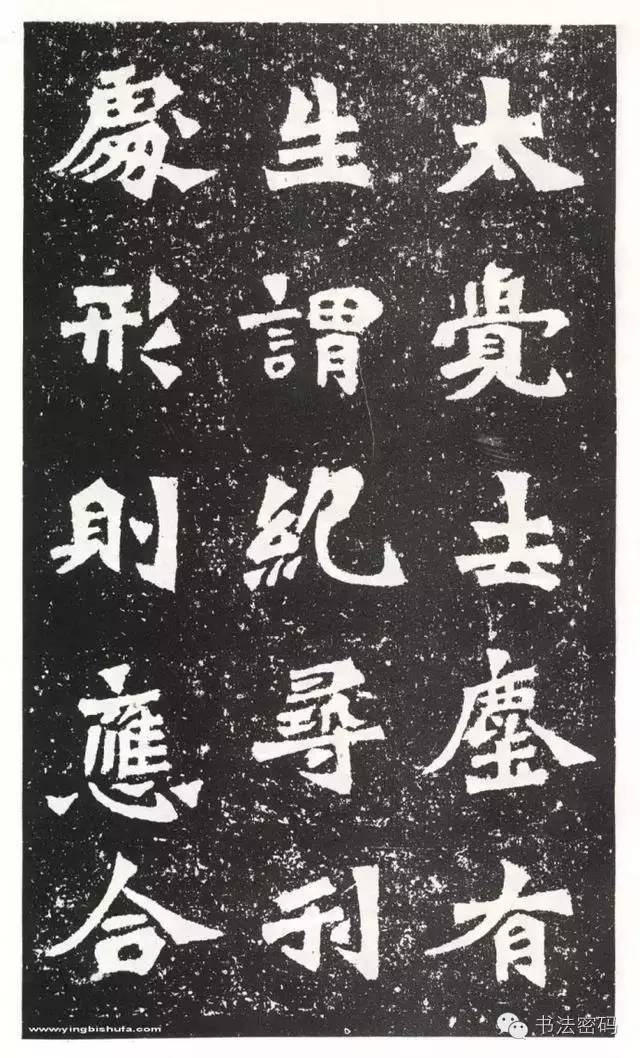 太覺去塵有
生謂紀尋刋
處形則應合
www.yingbishufa.com
书法密码